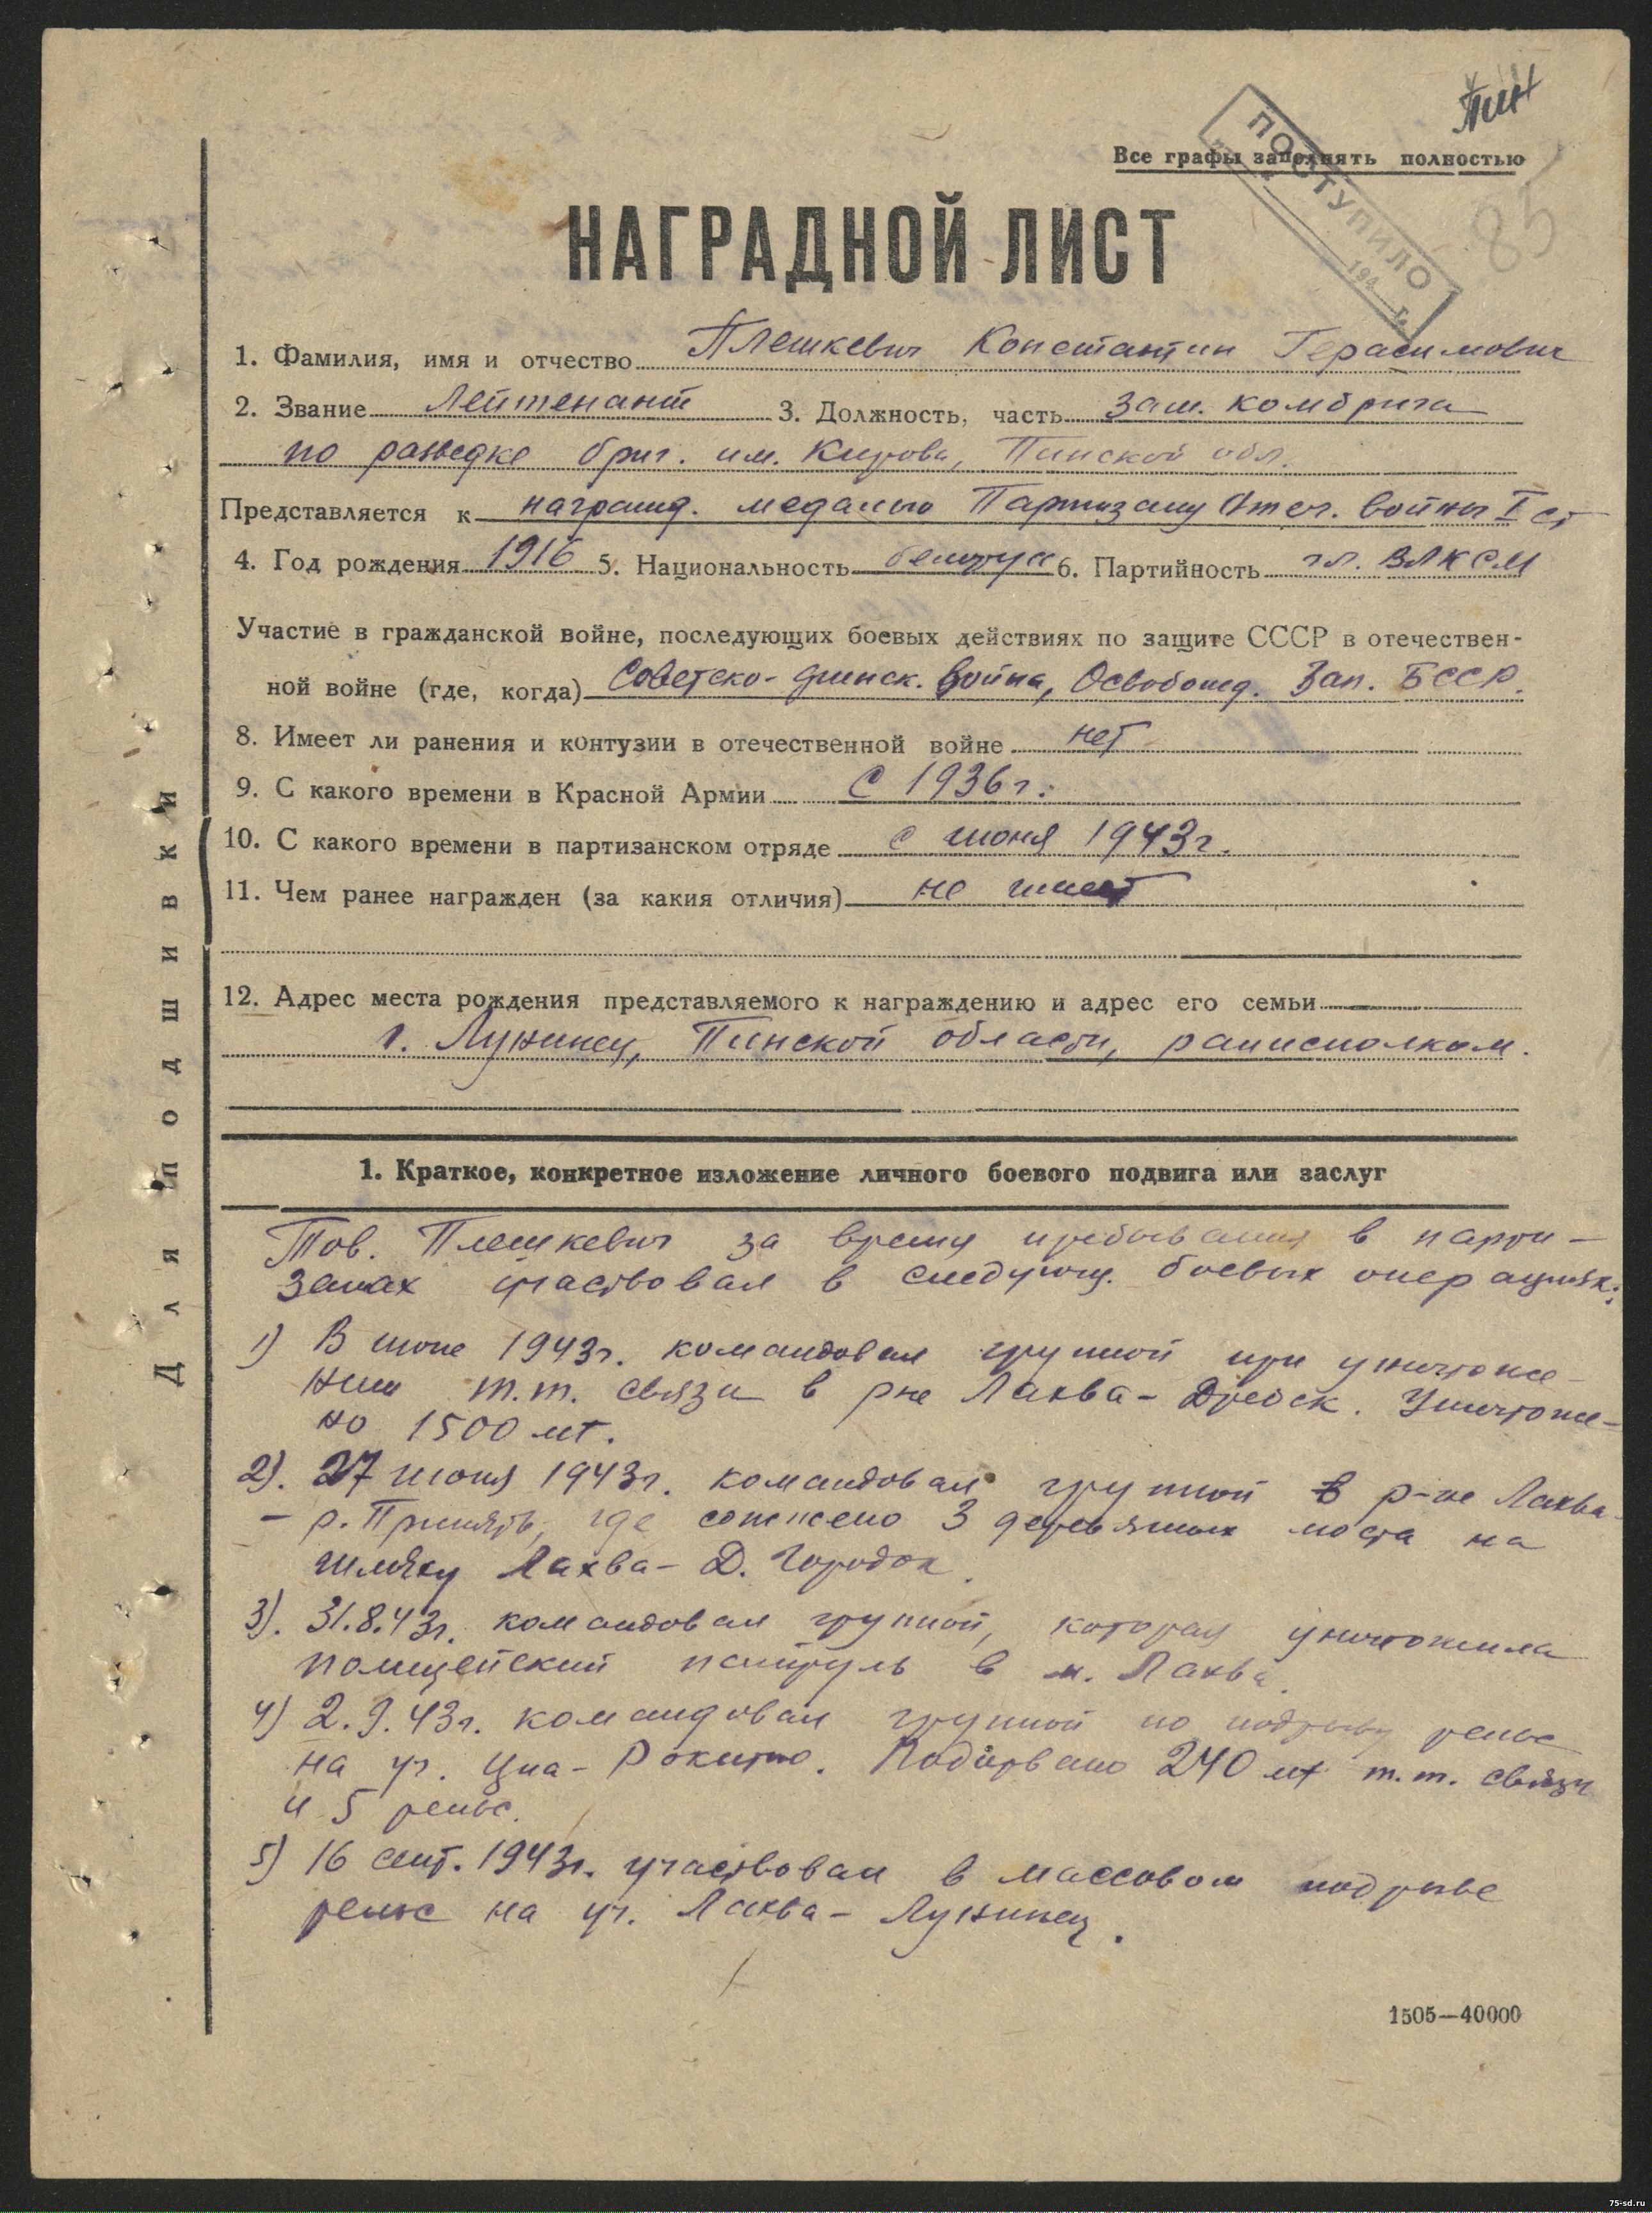 Пин
Все графы заполнять полностью
ПОСТУПИЛО
194 г.
85
НАГРАДНОЙ ЛИСТ
1. Фамилия, имя и отчество Плешкевич Константин Герасимович
2. Звание Лейтенант 3. Должность, часть зам. комбрига
по разведке бриг. им. Кирова, Пинской обл.
Представляется к награжд. медалью Партизану Отеч. войны I ст
4. Год рождения 1916 5. Национальность белорус 6. Партийность чл. ВЛКСМ
Участие в гражданской войне, последующих боевых действиях по защите СССР в отечествен-
ной войне (где, когда) Советско-финск. война, Освобожд. Зап. БССР.
8. Имеет ли ранения и контузии в отечественной войне нет
9. С какого времени в Красной Армии С 1936 г.
10. С какого времени в партизанском отряде с июня 1943 г.
11. Чем ранее награжден (за какия отличия) не имеет
12. Адрес места рождения представляемого к награждению и адрес его семьи
г. Лунинец, Пинской области, райисполком.
Для подшивки
1. Краткое, конкретное изложение личного боевого подвига или заслуг
Тов. Плешкевич за время пребывания в парти-
занах участвовал в следующ. боевых операциях:
1) В июне 1943г. командовал группой при уничтоже-
нии т.т. связи в р-не Лахва- Дребск. Уничтоже-
но 1500 мт.
2). 27 июня 1943г. командовал группой в р-не Лахва-
- р. Припять, где сожжено 3 деревянных моста на
шляху Лахва- Д. Городок.
3). 31.8.43г. командовал группой, которая уничтожила
полицейский патруль в м. Лахва.
4) 2.9.43г. командовал группой по подрыву рельс
на уч. Цна- Рокитно. Подорвано 240 мт т.т. связи
и 5 рельс.
5) 16 сент. 1943г. участвовал в массовом подрыве
рельс на уч. Лахва- Лунинец.
1505—40000
75-sd.ru